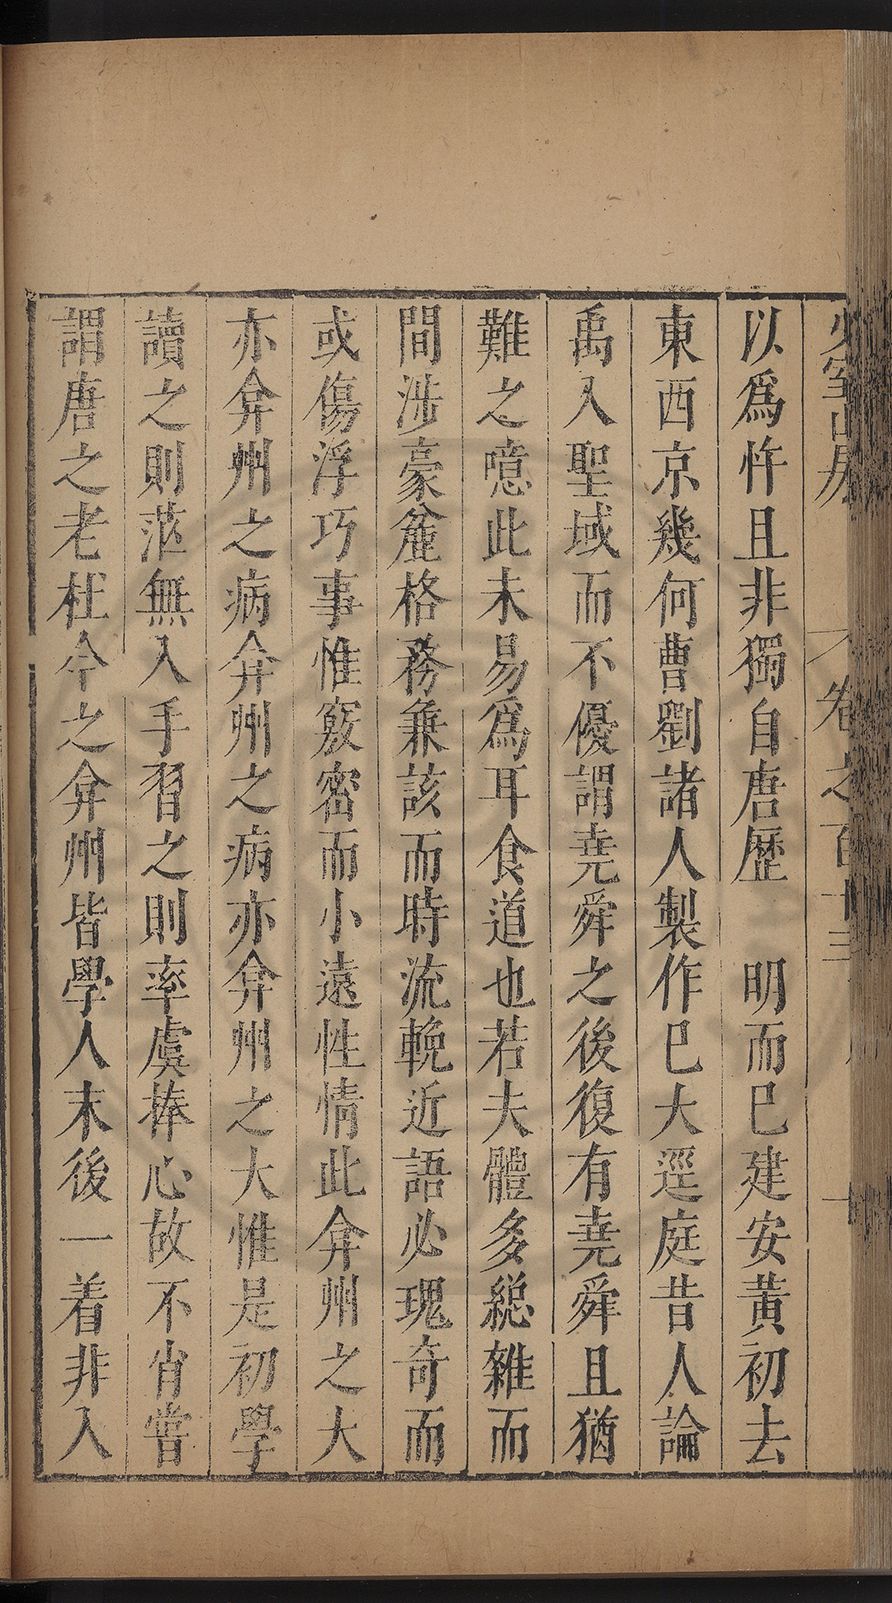 少室山房　卷之百十三
以爲忤且非獨自唐歷　明而巳建安黃初去
東西京幾何曹劉諸人製作巳大逕庭昔人論
禹入聖域而不優謂堯舜之後復有堯舜且猶
難之噫此未易爲耳食道也若夫體多総雜而
間涉豪麄格務兼該而時流輓近語必瑰奇而
或傷浮巧事惟覈密而小遠性情此弇州之大
亦弇州之病弇州之病亦弇州之大惟是初學
讀之則茫無入手習之則率虞捧心故不肖嘗
謂唐之老杜今之弇州皆學人末後一着非入